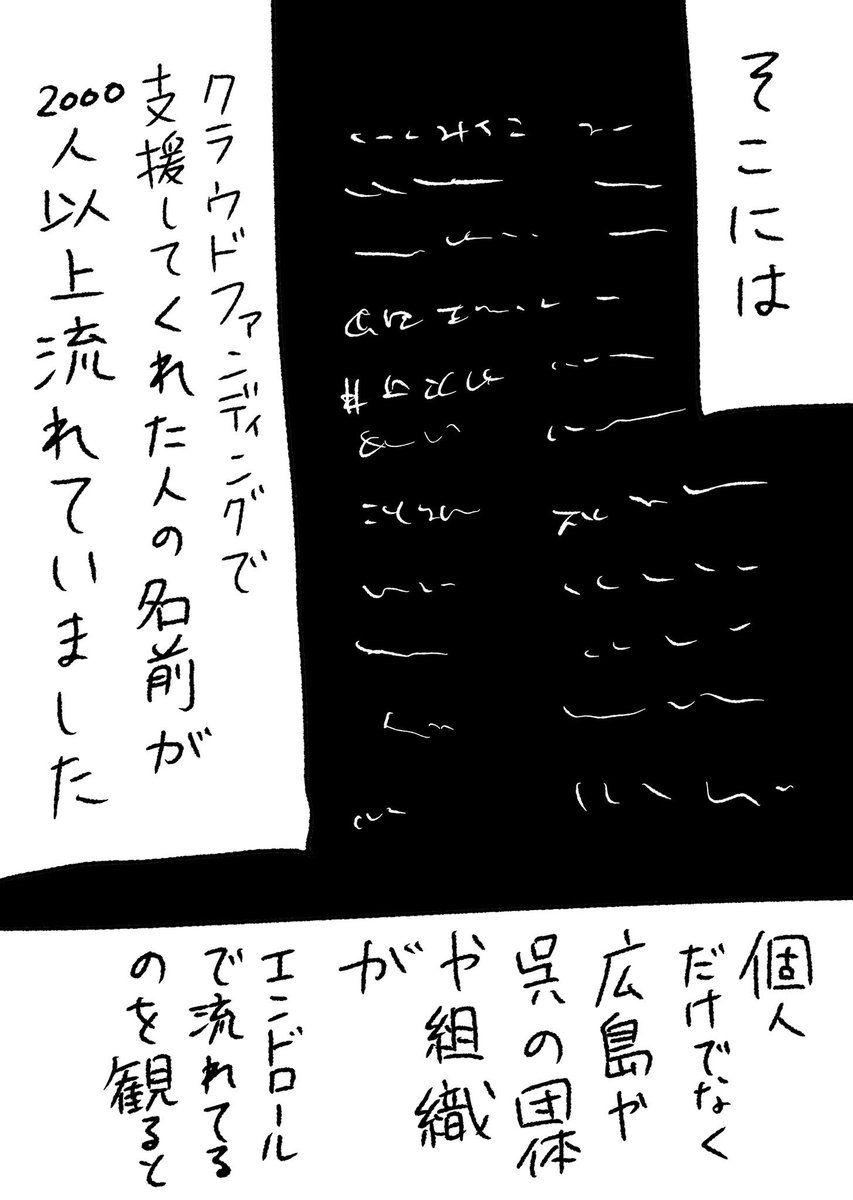 そこには
クラウドファンディングで
支援してくれた人の名前が
2000人以上流れていました
個人
だけでなく
広島や
呉の団体
や組織
が
エンドロール
で流れてる
のを観ると